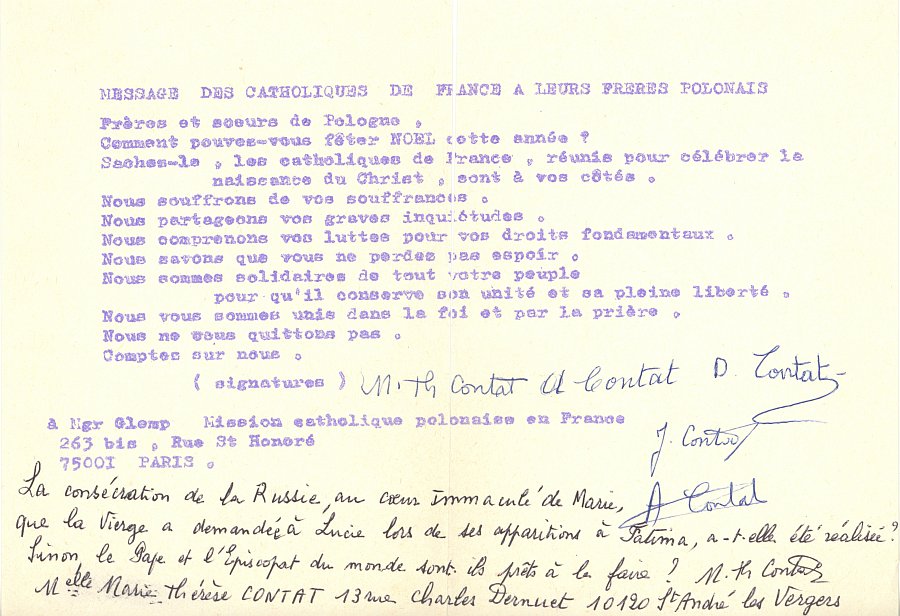 MESSAGE DES CATHOLIQUES DE FRANCE A LEURS FRERES POLONAIS
Frères et soeurs de Pologne .
Comment pouvez-vous fêter NOEL cette année ?
Sachez-le , les catholiques de France , réunis pour célébrer la
naissance du Christ , sont à vos côtés .
Nous souffrons de vos souffrances .
Nous partageons vos graves inquiétudes .
Nous comprenons vos luttes pour vos droits fondamentaux .
Nous savons que vous ne perdez pas espoir .
Nous sommes solidaires de tout votre peuple
pour qu'il conserve son unité et sa pleine liberté .
Nous vous sommes unis dans la foi et par la prière .
Nous ne vous quittons pas .
Comptez sur nous .
( signatures ) M. Th Contat A Contat D. Contat
à Mgr Glemp Mission catholique polonaise en France
263 bis , Rue St Honoré
J. Contat
75001 PARIS .
A Contat
La consécration de la Russie, au cœur Immaculé de Marie,
que la Vierge a demandée à Lucie lors de ses apparitions à Fatima, a-t-elle été réalisée?
Sinon le Pape et l'Episcopat du monde sont-ils prêts à la faire ? M. Th Contat
Melle Marie Thérèse CONTAT 13 rue Charles Dernuet 10120 St André les Vergers